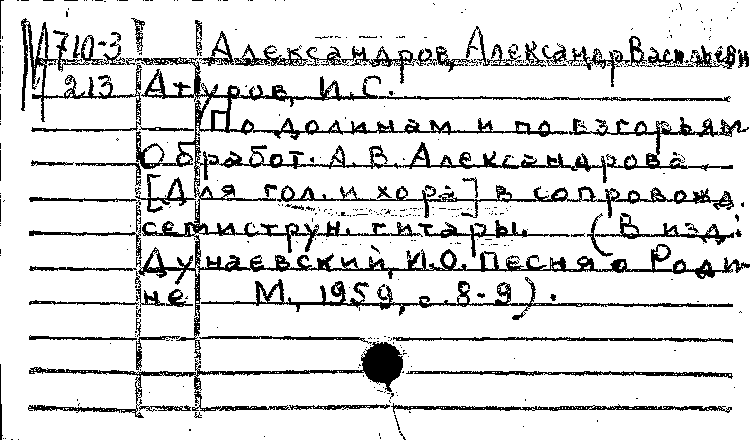 М 710-3 Александров, Александр Васильевич
213 Атуров, И. С.
По долинам и по взгорьям
Обработ. А. В. Александрова
[Для гол. и хора] в сопровожд.
семиструн. гитары. (В изд.:
Дунаевский, И.О. Песня о Роди-
не М., 1959, с. 8-9).